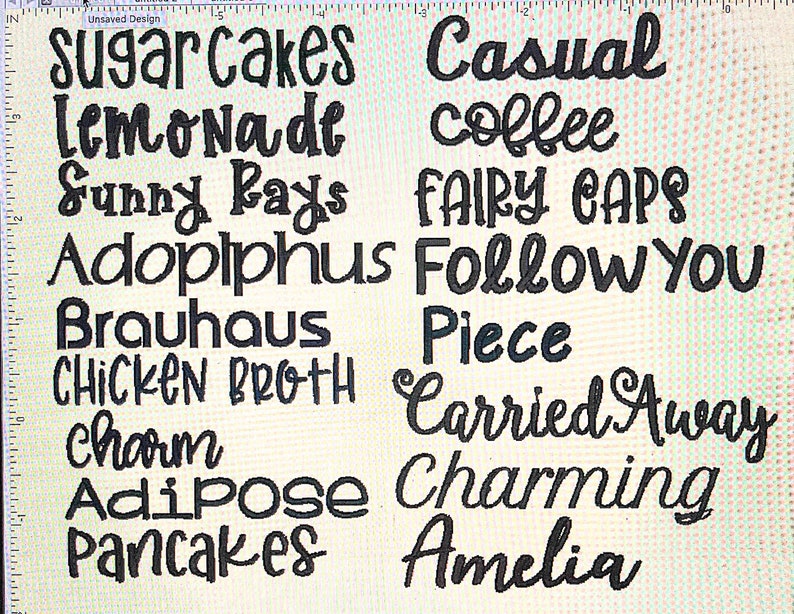 Unsaved Design
IN
-5
-4
-3
-2
-1
0
sugar cakes
Lemonade
Sunny Rays
Adoplphus
Brauhaus
CHiCKEN BROTH
charm
Adipose
pancakes
Casual
coffee
FAIRY CAPS
Follow You
Piece
Carried Away
Charming
Amelia
3
2
1
0